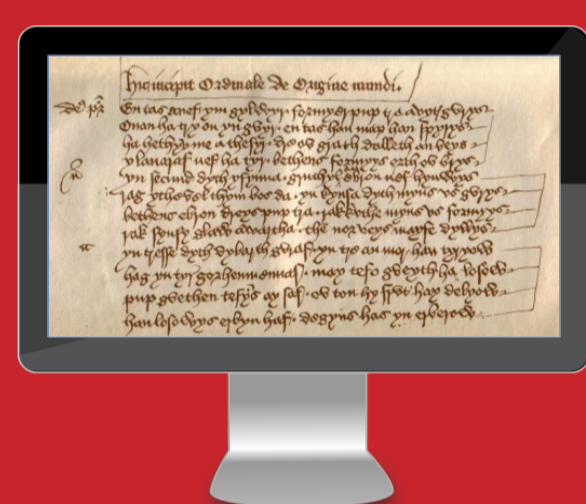 Hic incipit Ordinale de Origine mundi.
de9 pr̄ En tas a nef ym gylwyr · formyer pup tra a vyt gvrys
Onan ha try on yn gvyr · en tas han map han spyrys
ha hethyw me a thesyr · dre ov grath dalleth an beys
y lavaraf nef ha tyr · bethens formyys orth ov brys
yn secund dyth y fynna · gruthyl ebron nef hynwys
rag ythevel thym bos da · yn kynsa dyth myns vs gvrys
bethens ebron dreys pup tra · rak kuthe myns vs formyys
rak synsy glaw awartha · the nor veys mayfe dyllys
a yn tresse dyth dybarth gvraf · yn tre an mor han tyryow
hag yn tyr gorhenmennaf · may tefo gveyth ha losow
pup gvethen tefyns ay saf · ov ton hy ffrvt hay delyow
han losowys erbyn haf · degyns has yn erberow